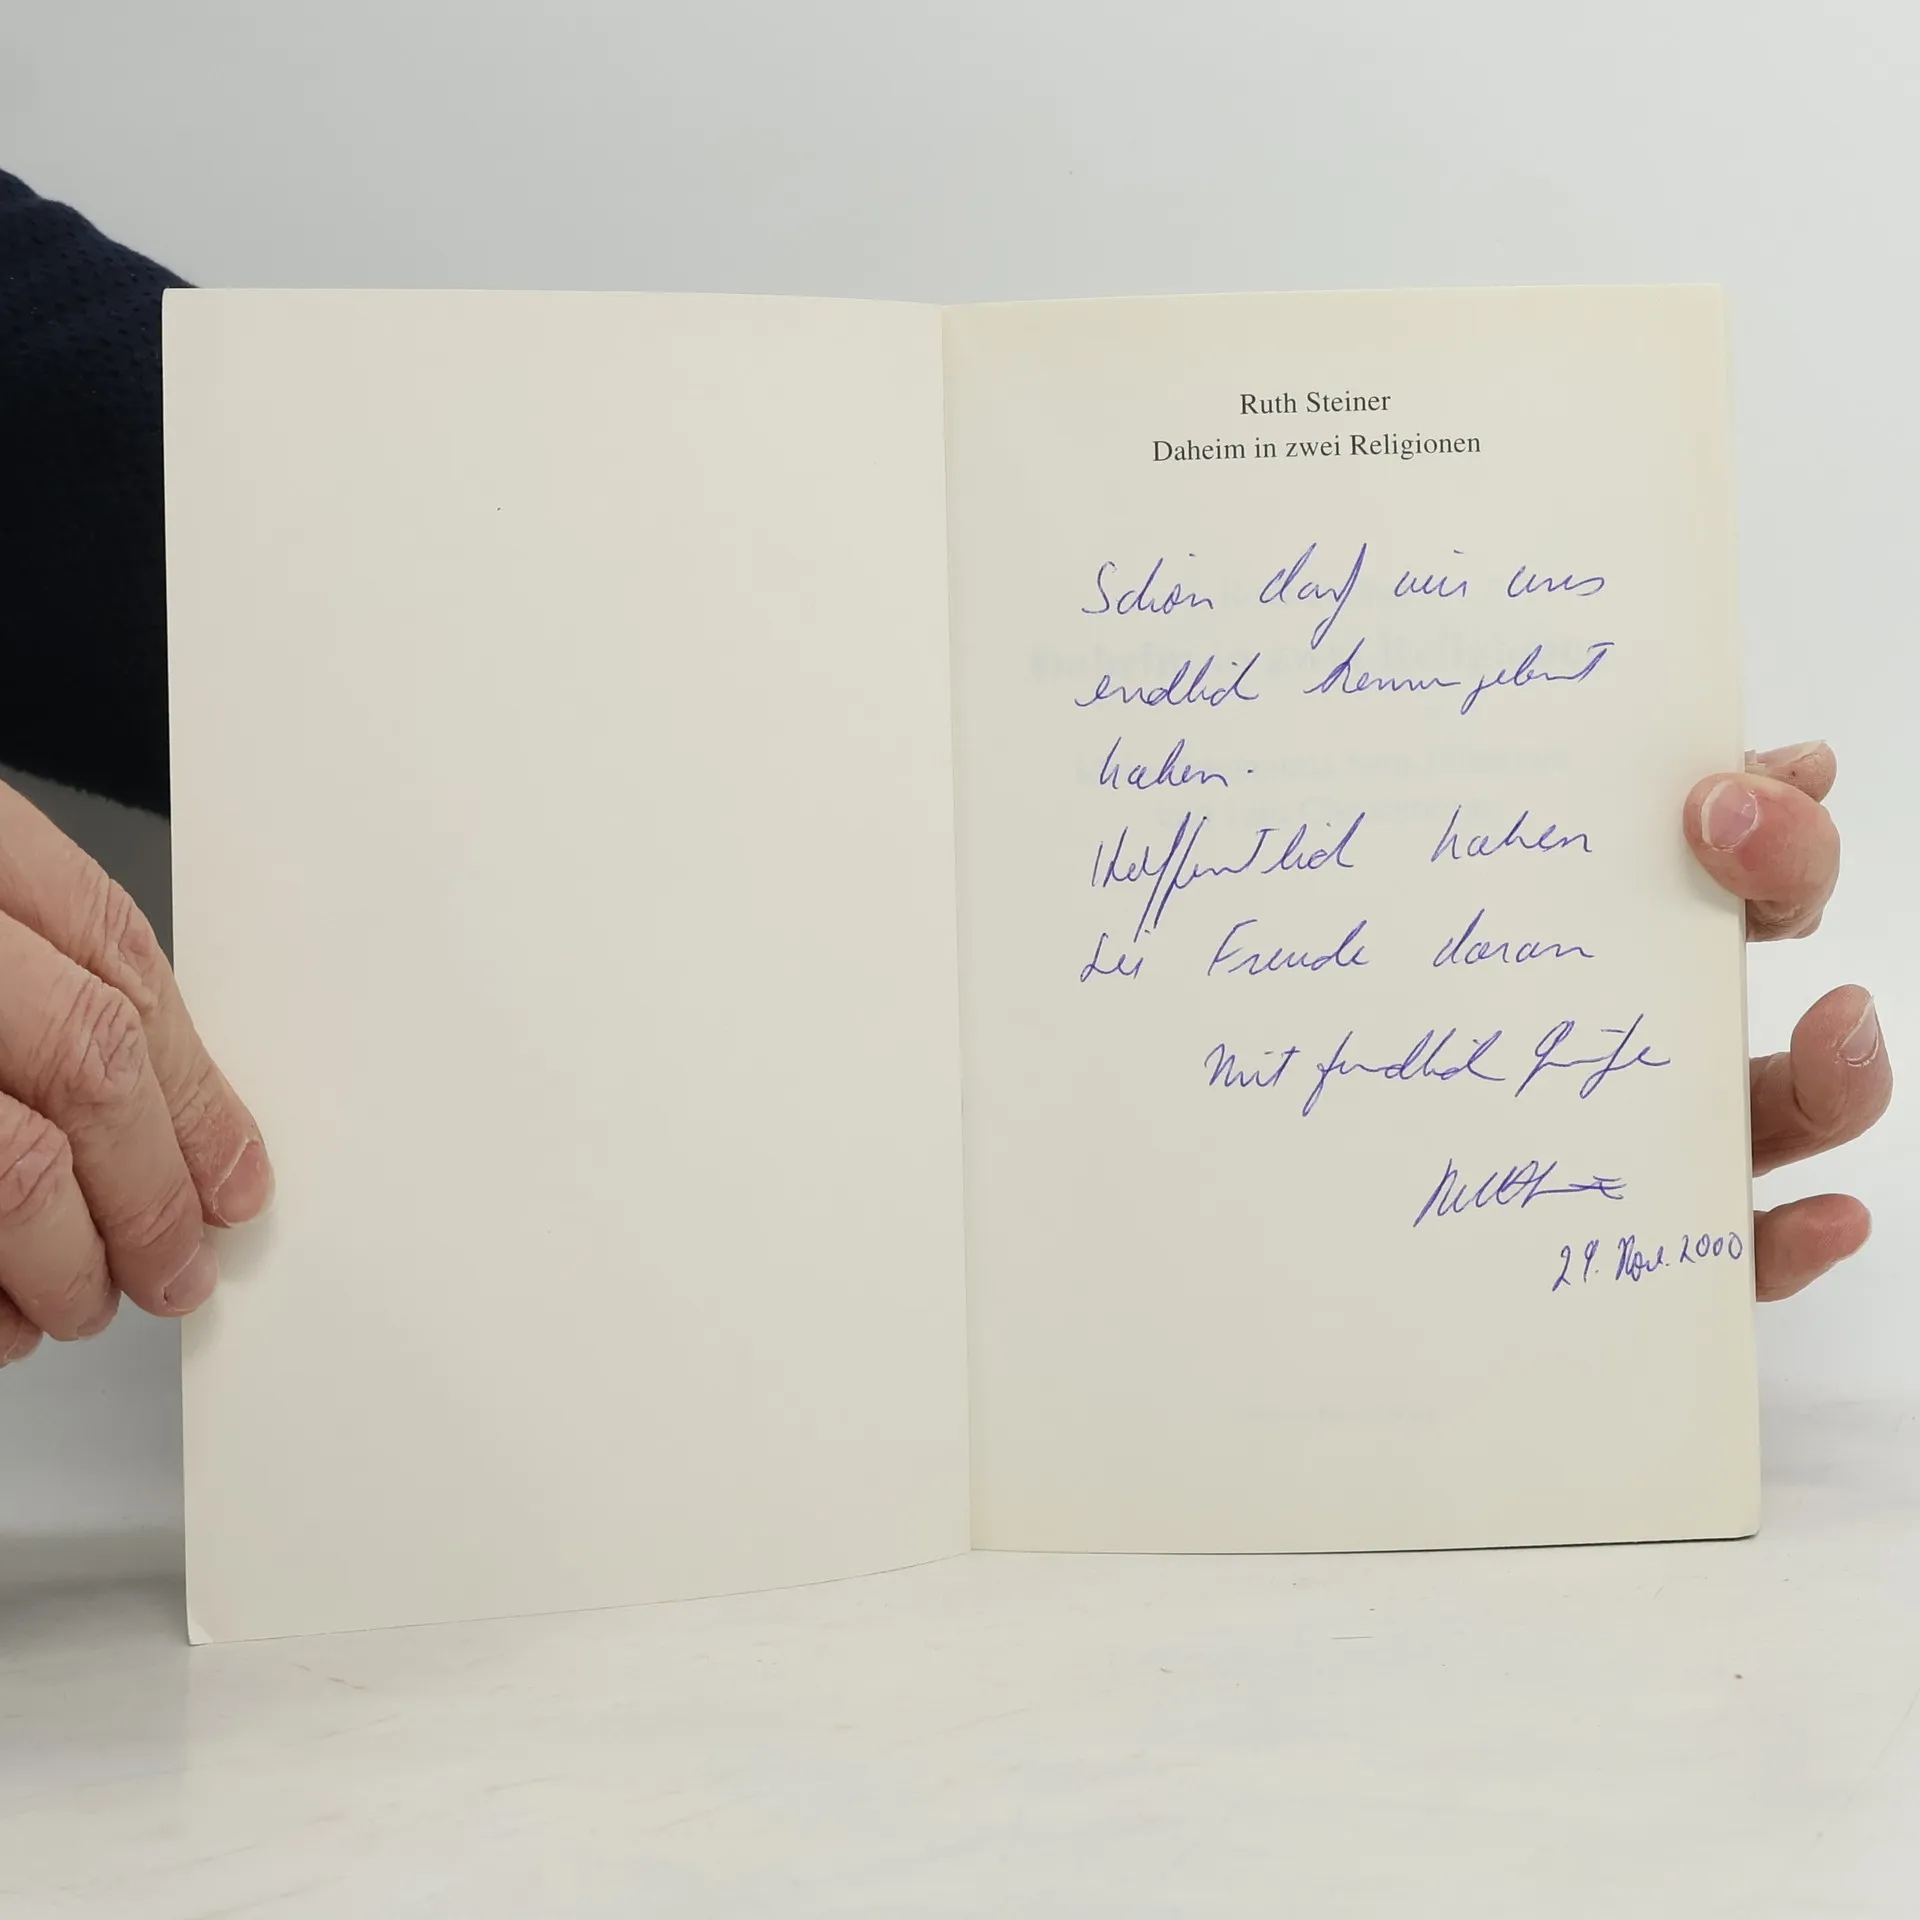 Ruth Steiner
Daheim in zwei Religionen
Schön daß wir uns
endlich kennengelernt
haben.
Hoffentlich haben
Sie Freude daran
Mit freundlich Grüße
29. Nov. 2000